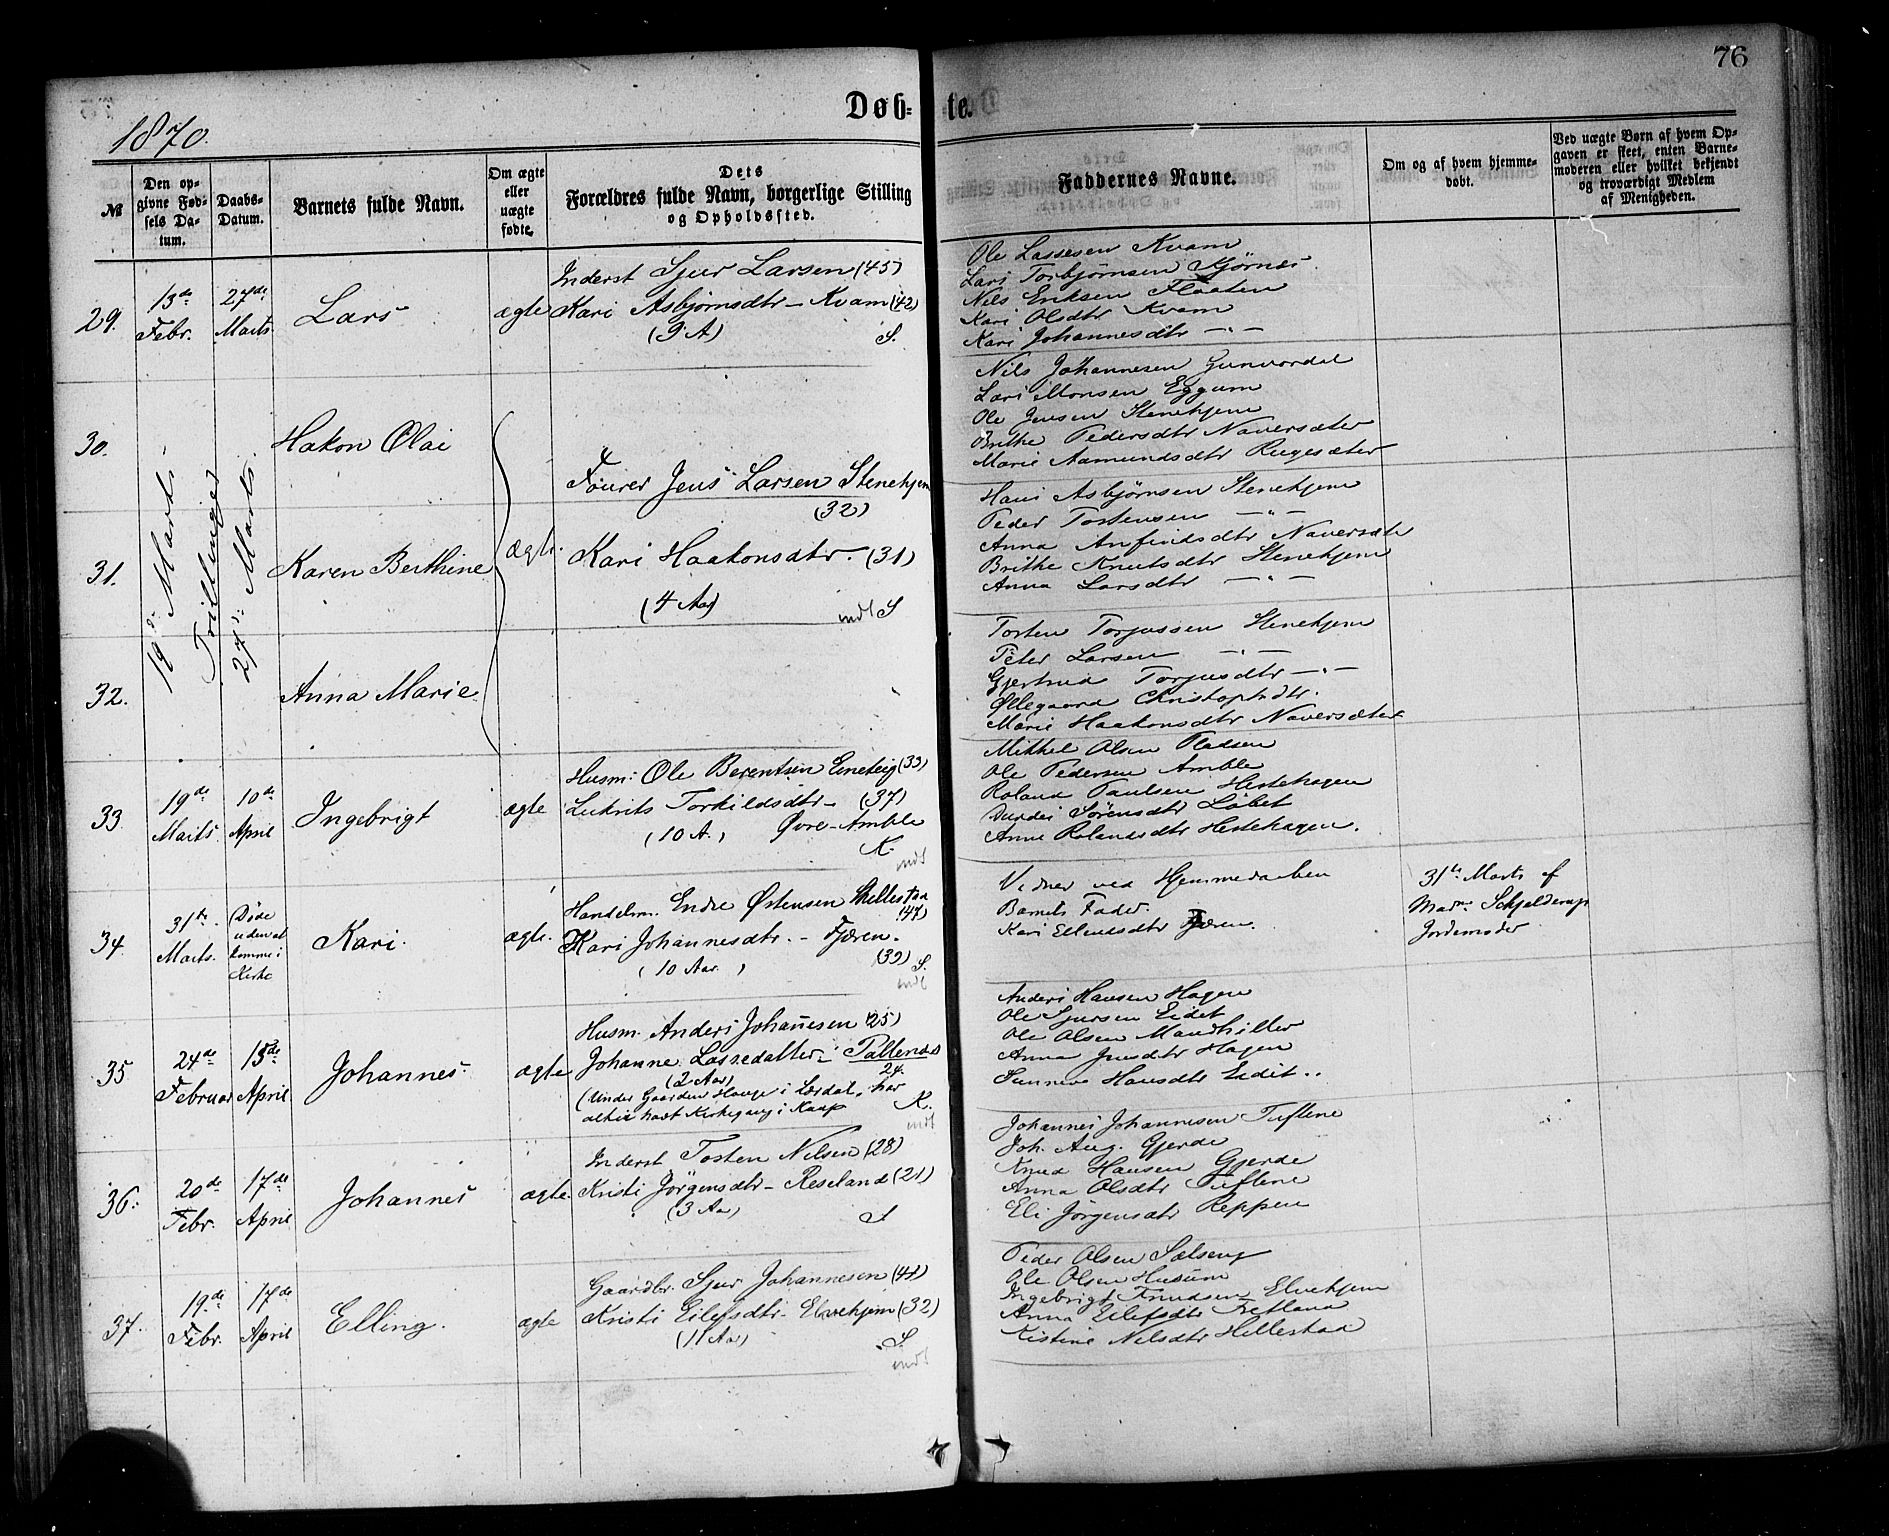 76
Døb-
te.
1870.
№
Den op-
givne Fød-
sels Da-
tum.
Daabs-
Datum.
Barnets fulde Navn.
Om ægte
eller
uægte
født.
Dets
Forældres fulde Navn, borgerlige Stilling
og Opholdssted.
Faddernes Navne.
Om og af hvem hjemme-
døbt.
Ved uægte Børn af hvem Op-
gaven er skeet, enten Barne-
moderen eller hvilket bekjendt
og troværdigt Medlem
af Menigheden.
29.
13de
Febr.
27de
Marts
Lars
ægte
Inderst Sjur Larsen (45)
Kari Asbjørnsdtr - Kvam (42)
(9 A)
S.
Ole Lassesen Kvam
Lars Torbjørnsen Stjørnes
Nils Eriksen Flaaten
Kari Olsdtr Kvam
Kari Johannesdtr -"-
30.
31.
32.
19de Marts
Trillinger
27de Marts.
Hakon Olai
Karen Berthine
Anna Marie
ægte.
Fourer Jens Larsen Stenehjem
(32)
Kari Haakonsdtr. (31)
(4 Aar)
indt S
Nils Johannesen Gunvordal
Lars Monsen Eggum
Ole Jensen Stenehjem
Brithe Pedersdtr Naversæter
Marie Aamundsdtr Rugesæter
Hans Asbjørnsen Stenehjem
Peder Tostensen -"-
Anna Anfindsdtr Naversæte
Brithe Knutsdtr Stenehjem
Anna Larsdtr -"-
Tosten Torjussen Stenehjem
Peter Larsen -"-
Gjertrud Torjusdtr -"-
Øllegaard Christophdtr.
Marie Haakonsdtr Naversæter
33.
19de
Marts.
10de
April
Ingebrigt
ægte
Husm: Ole Berentsen Eneteig (33)
Lukrits Torkildsdtr - (37)
(10 A.) Øvre-Amble
K.
indt
Mikkel Olsen Fladsen
Ole Pedersen Amble
Roland Paulsen Hestehagen
Durdei Sørensdtr Løbet
Anne Rolandsdtr Hestehagen.
34.
31te
Marts.
Døde
uden at
komme i
Kirke
Kari.
ægte.
Handelm. Endre Østensen Skellestad
(47)
Kari Johannesdtr. - Fjæren.
(39)
(10 Aar.)
S.
indt
Vidner ved Hjemmedaaben
Barnets Fader.
Kari Ellendsdtr Fjæren.
31te Marts af
Madm. Schjelderup
Jordemoder
35
24de
Februar
15de
April
Johannes.
ægte
Husm. Anders Johannesen (25)
Johanne Lassedatter - Tallendas
24.
(2 Aar)
(Under Gaarden Hauge i Lærdal, har
altid havt Kirkegang i Kaup
K.
indt
Anders Hansen Hagen
Ole Sjursen Eidet
Ole Olsen Mandhiller
Anna Jensdtr Hagen
Sunneva Hansdtr Eidet..
36.
20de
Febr.
17de
April
Johannes
ægte
Inderst Tosten Nilsen (28)
Kristi Jørgensdtr - Reseland (21)
(3 Aar)
S
Johannes Johannesen Tuftene
Joh. Aug. Gjerde
Knud Hansen Gjerde
Anna Olsdtr Tuftene
Eli Jørgensdtr Reppen
37.
19de
Febr.
17de
April
Elling.
ægte
Gaardbr. Sjur Johannesen (41)
Kristi Eilefsdtr - Elvehjem (32)
(11 Aar)
S.
indt
Peder Olsen Sælseng
Ole Olsen Husum
Ingebrigt Knudsen Elvehjem
Anna Eilefsdtr Tretland
Kistine Nilsdtr Hellestad